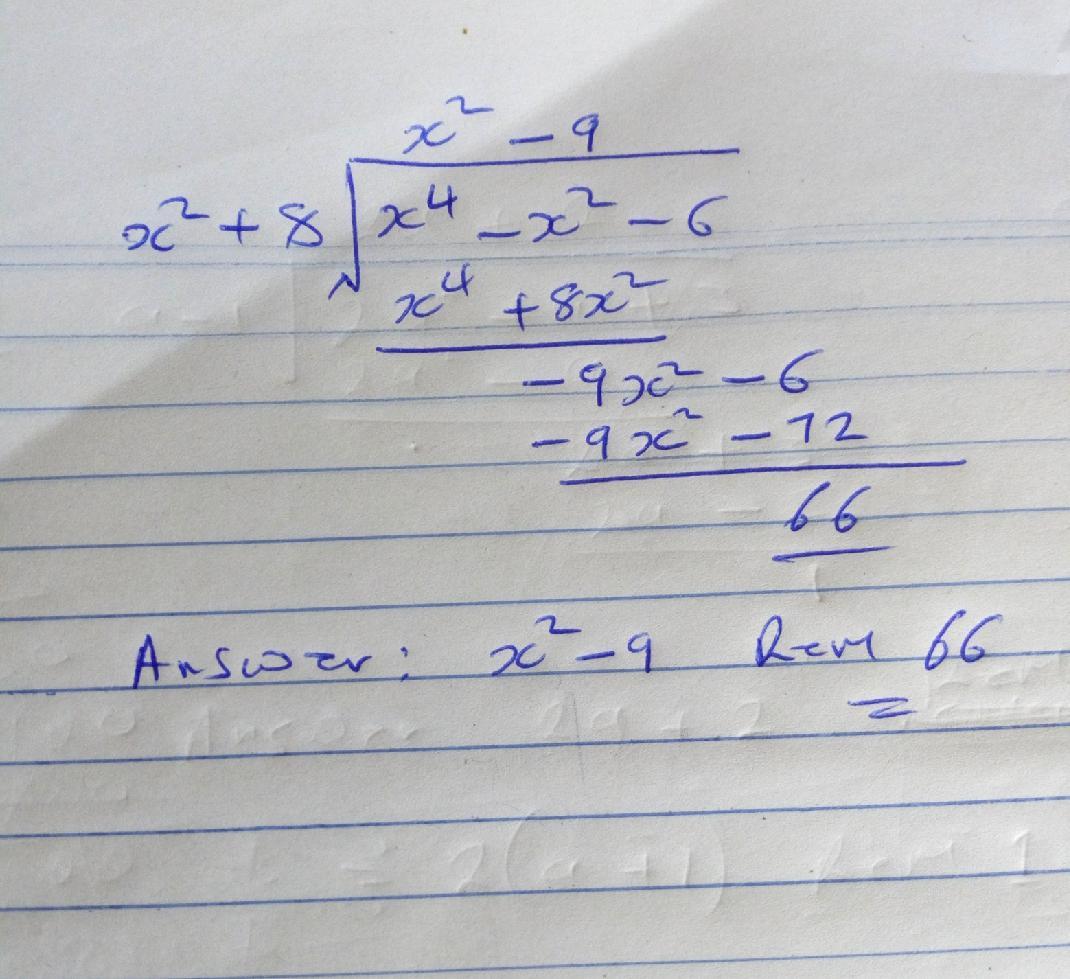 x² - 9
x² + 8 √ x⁴ - x² - 6
x⁴ + 8x²
- 9x² - 6
- 9x² - 72
66
Answer: x² - 9 Rem 66